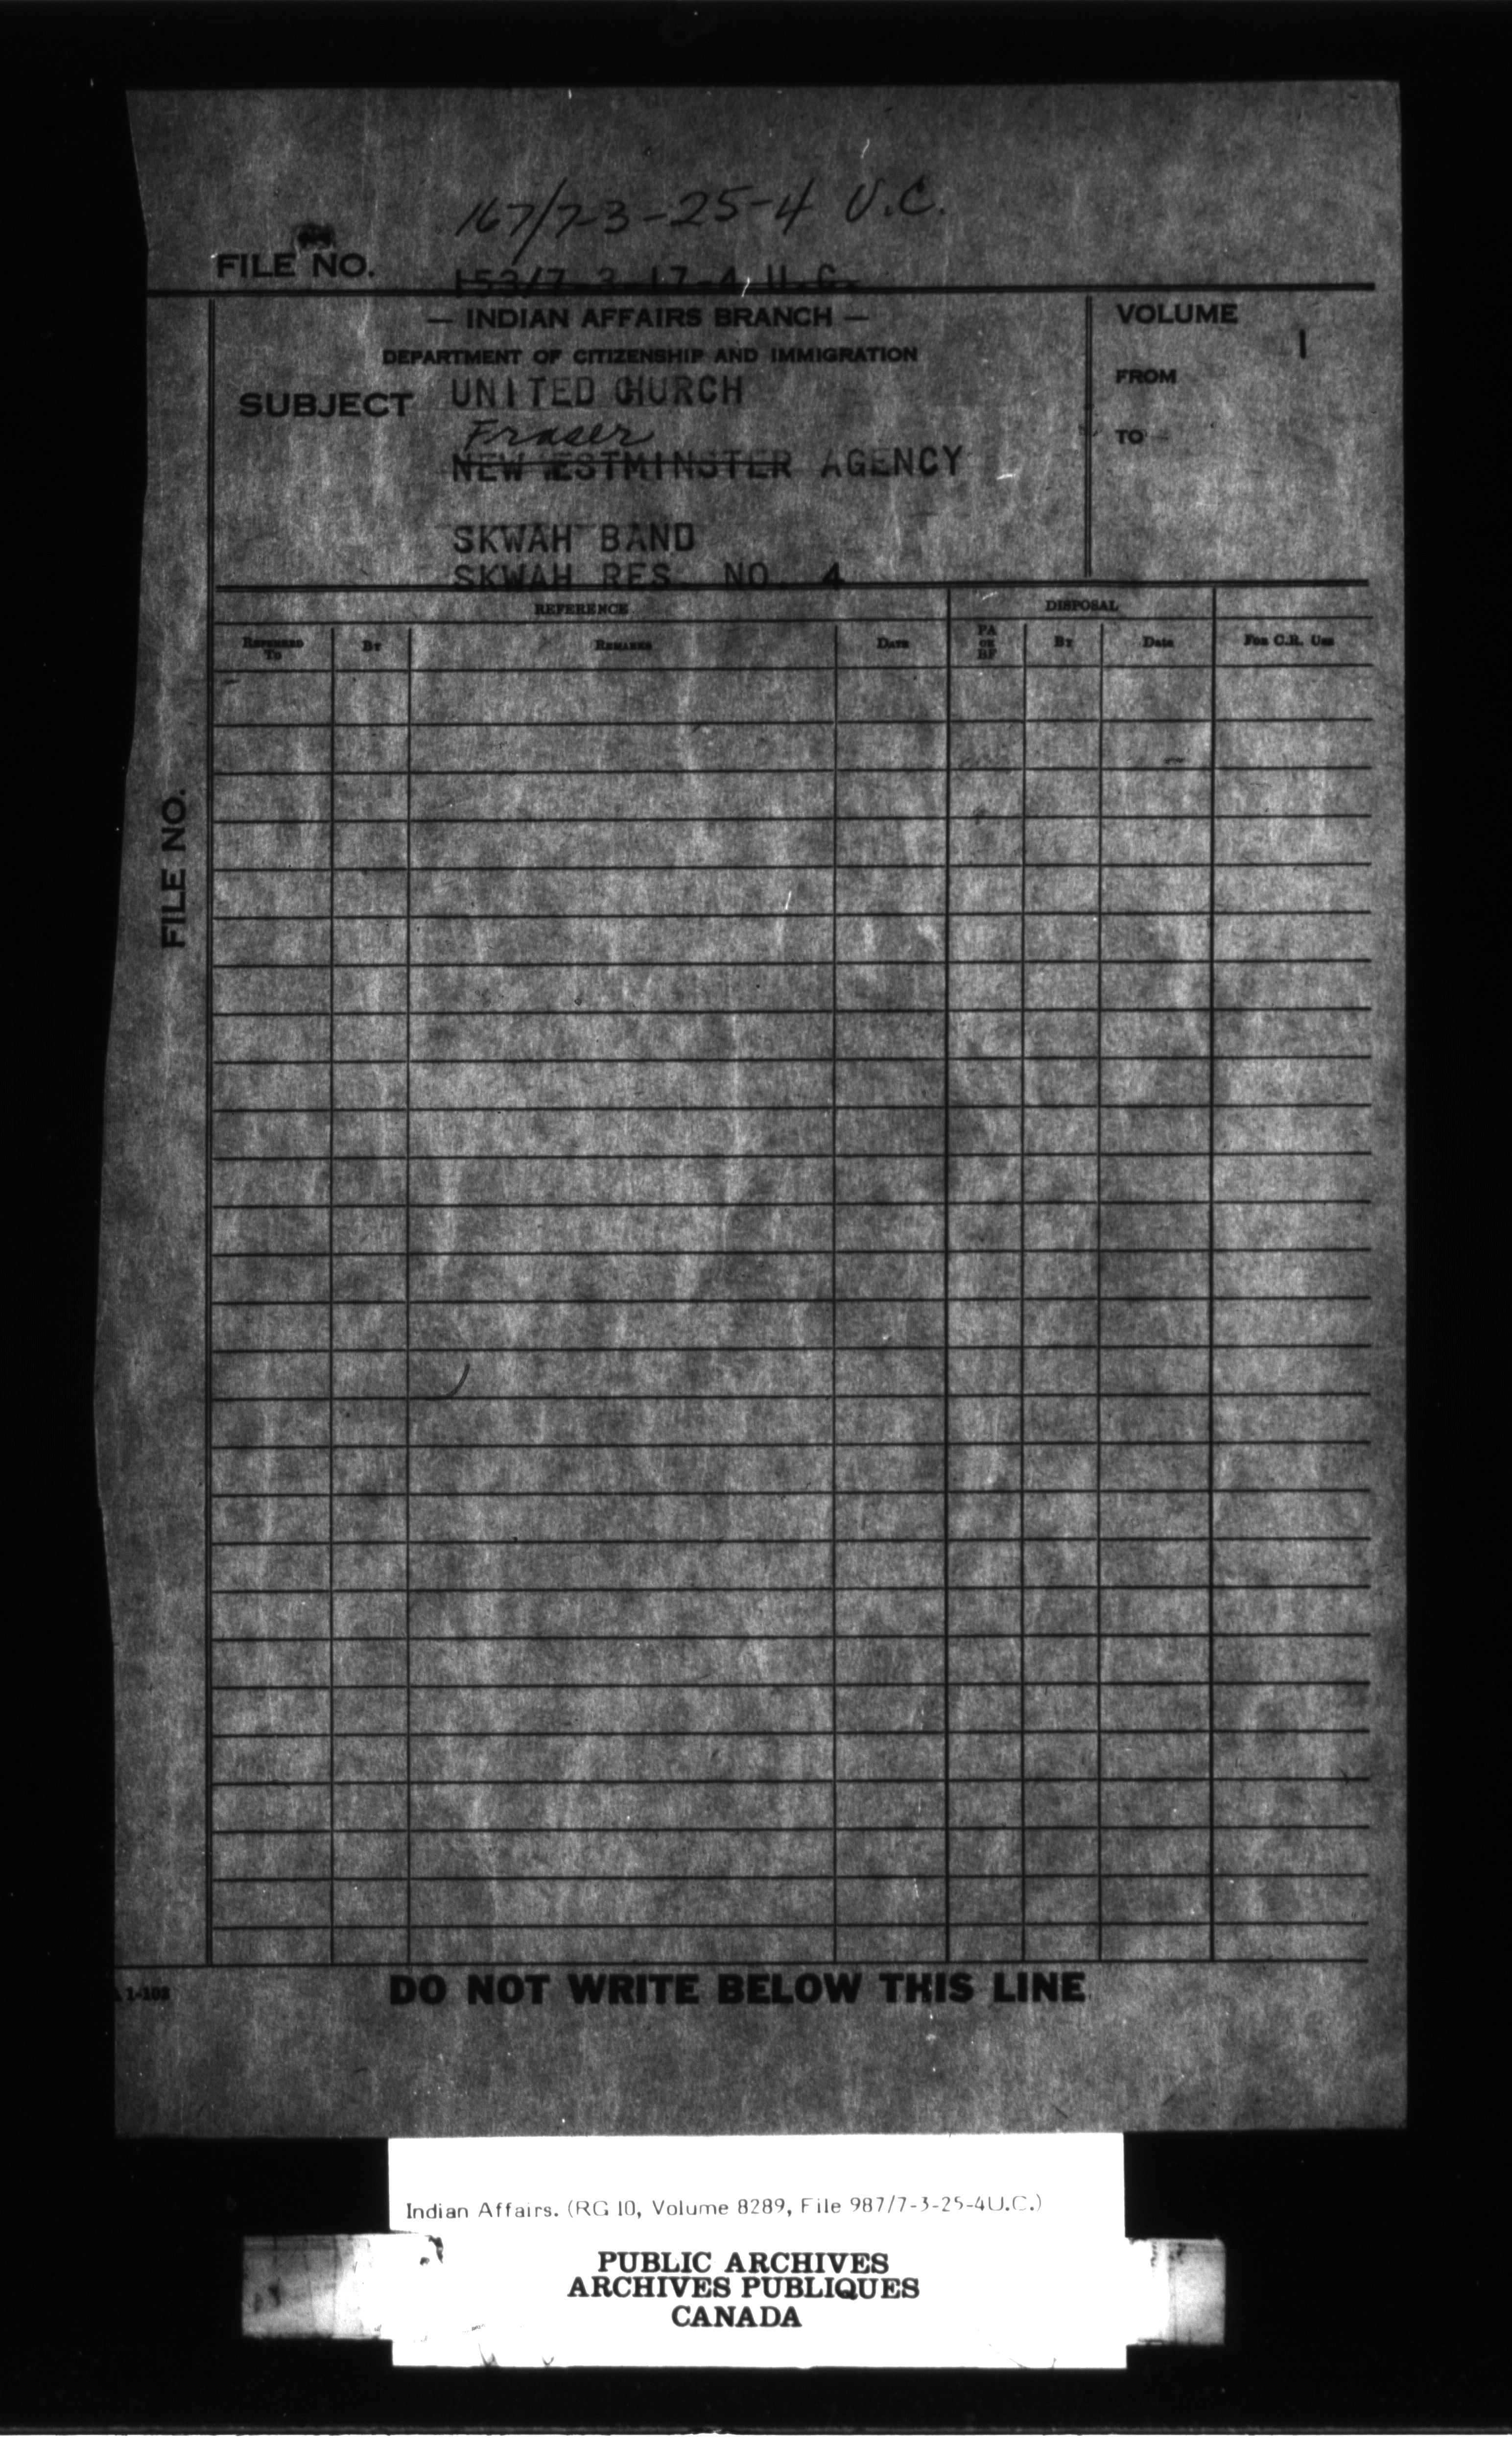 167/7-3-25-4 U.C.
FILE NO.
153/7-3-17-4 U.C.
— INDIAN AFFAIRS BRANCH —
DEPARTMENT OF CITIZENSHIP AND IMMIGRATION
VOLUME 1
FROM
TO
SUBJECT UNITED CHURCH
Fraser
NEW WESTMINSTER AGENCY
SKWAH BAND
SKWAH RES. NO. 4
REFERENCE DISPOSAL
REFERRED TO BY REMARKS DATE PA OR BF BY Date For C.R. Use
FILE NO.
1-102
DO NOT WRITE BELOW THIS LINE
Indian Affairs. (RG 10, Volume 8289, File 987/7-3-25-4U.C.)
PUBLIC ARCHIVES
ARCHIVES PUBLIQUES
CANADA